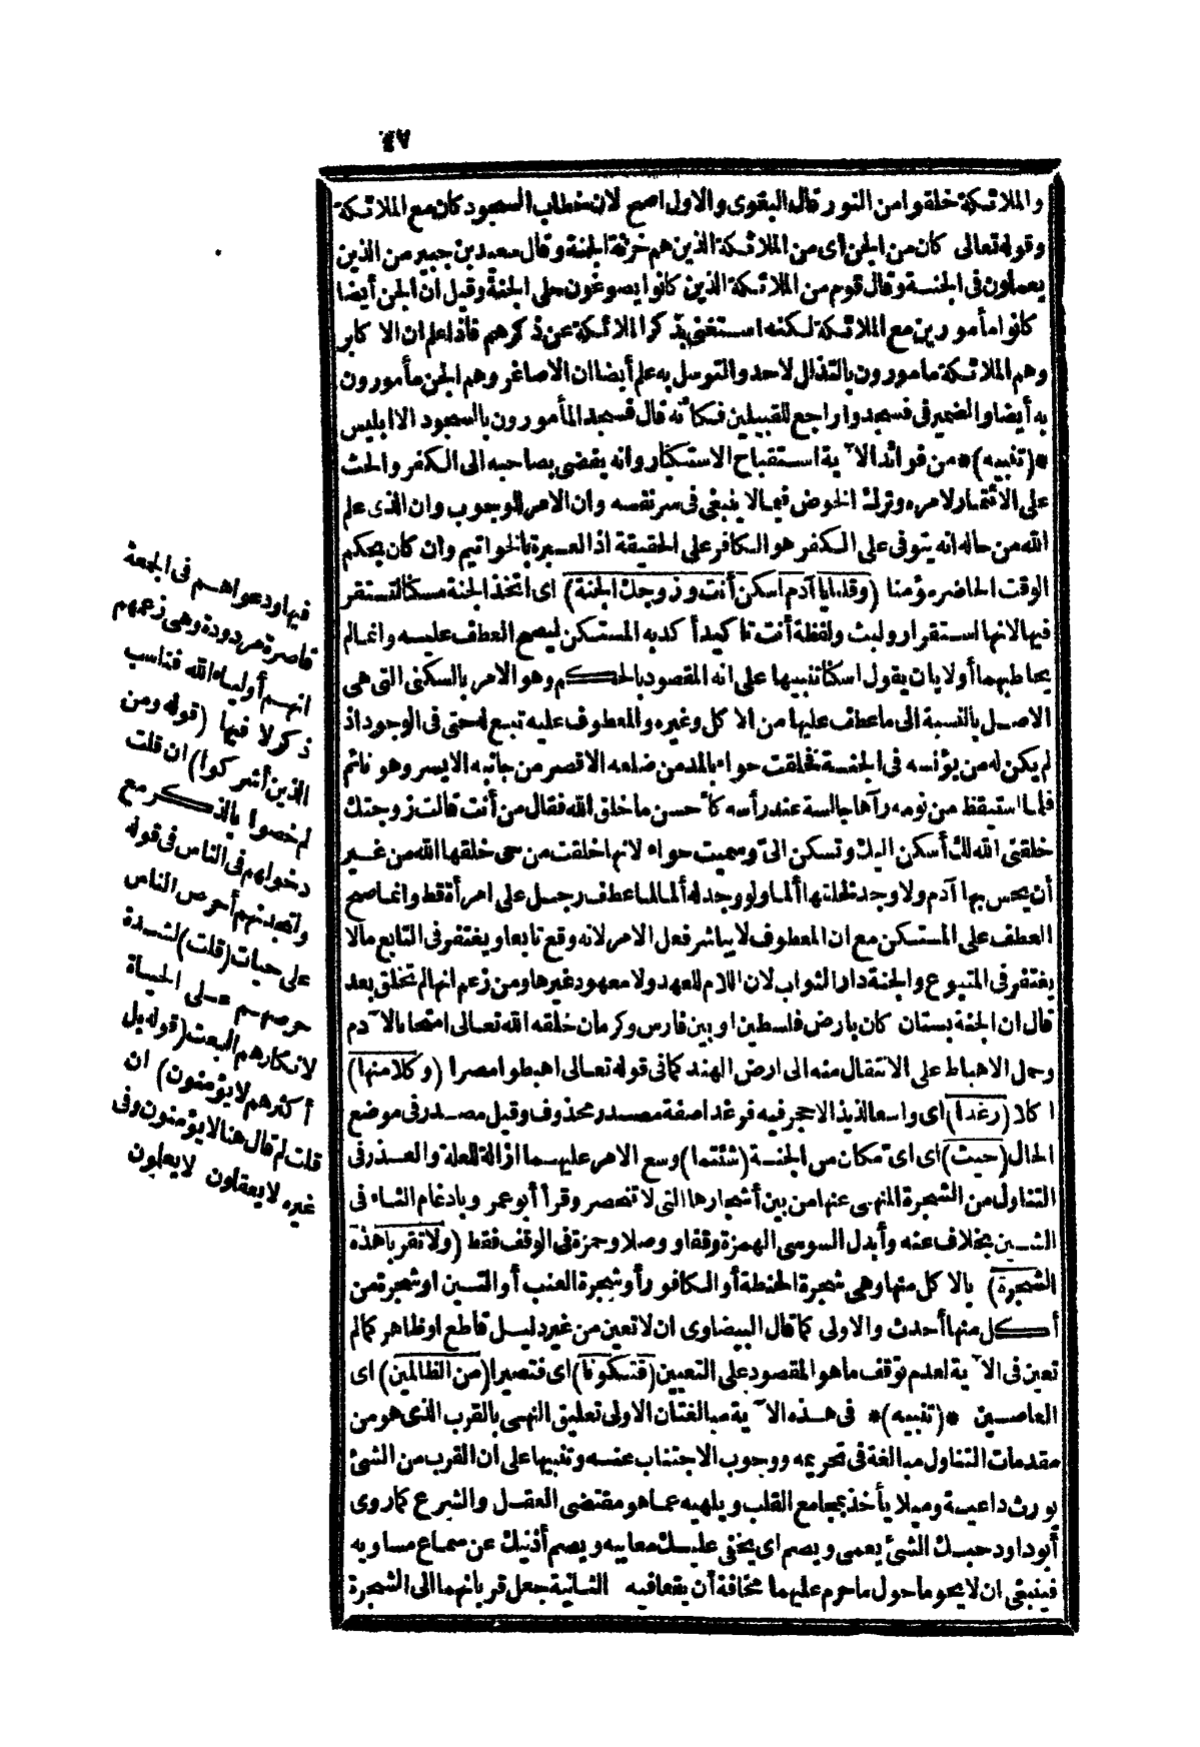 ٤٨
والملائكة خلقوا من النور قال البغوى والاول اصح لان خطاب السجود كان مع الملائكة
وقوله تعالى كان من الجن أى من الملائكة الذين هم خزنة الجنة وقال سعيد بن جبير من الذين
يعملون فى الجنة وقال قوم من الملائكة الذين كانوا يصوغون حلى الجنة وقيل ان الجن أيضا
كانوا مأمورين مع الملائكة لكنه استغنى بذكر الملائكة عن ذكرهم فاذا علم ان الاكابر
وهم الملائكة مأمورون بالتذلل لاحد والتوسل به علم أيضا ان الاصاغر وهم الجن مأمورون
به أيضا والضمير فى فسجدوا راجع للقبيلين فكأنه قال فسجد المأمورون بالسجود الا ابليس
*(تنبيه)* من فوائد الآية استقباح الاستكبار وانه يفضى بصاحبه الى الكفر والحث
على الائتمار لامره وترك الخوض فيما لا ينبغى فى سر نفسه وان الامر للوجوب وان الذى علم
الله من حاله انه يتوفى على الكفر هو الكافر على الحقيقة اذ العبرة بالخواتيم وان كان بحكم
الوقت الحاضر مؤمنا (وقلنا يا آدم اسكن أنت وزوجك الجنة) اى اتخذ الجنة مسكنا لتستقر
فيها لانها استقرار ولبث ولفظة أنت تاكيد أكد به المستكن ليصح العطف عليه وانما لم
يخاطبهما أولا بان يقول اسكنا تنبيها على انه المقصود بالحكم وهو الامر بالسكنى التى هى
الاصل بالنسبة الى ما عطف عليها من الاكل وغيره والمعطوف عليه تبع له حتى فى الوجود اذ
لم يكن له من يؤنسه فى الجنة فخلقت حواء بالمد من ضلعه الاقصر من جانبه الايسر وهو نائم
فلما استيقظ من نومه رآها جالسة عند رأسه كأحسن ما خلق الله فقال من أنت قالت زوجتك
خلقنى الله لك أسكن اليك وتسكن الىّ وسميت حواء لانها خلقت من حى خلقها الله من غير
أن يحس بها آدم ولا وجد لخلقها ألما ولو وجد له ألما لما عطف رجل على امرأة قط وانما صح
العطف على المستكن مع ان المعطوف لا يباشر فعل الامر لانه وقع تابعا ويغتفر فى التابع مالا
يغتفر فى المتبوع والجنة دار الثواب لان اللام للعهد ولا معهود غيرها ومن زعم انها لم تخلق بعد
قال ان الجنة بستان كان بارض فلسطين او بين فارس وكرمان خلقه الله تعالى امتحانا لآدم
وحمل الاهباط على الانتقال منه الى ارض الهند كما فى قوله تعالى اهبطوا مصرا (وكلا منها)
اكلا (رغدا) اى واسعا لذيذا لا حجر فيه فرغدا صفة مصدر محذوف وقيل مصدر فى موضع
الحال (حيث) اى اىّ مكان من الجنة (شئتما) وسع الامر عليهما ازالة للعلة والعذر فى
التناول من الشجرة المنهى عنها من بين أشجارها التى لا تنحصر وقرأ أبو عمرو بادغام الثاء فى
الشين بخلاف عنه وأبدل السوسى الهمزة وقفا ووصلا وحمزة فى الوقف فقط (ولا تقربا هذه
الشجرة) بالاكل منها وهى شجرة الحنطة أو الكافور أو شجرة العنب أو التين او شجرة من
أكل منها أحدث والاولى كما قال البيضاوى ان لا تعين من غير دليل قاطع او ظاهر كما لم
تعين فى الآية لعدم توقف ما هو المقصود على التعيين (فتكونا) اى فتصيرا (من الظالمين) اى
العاصين *(تنبيه)* فى هذه الآية مبالغتان الاولى تعليق النهى بالقرب الذى هو من
مقدمات التناول مبالغة فى تحريمه ووجوب الاجتناب عنه وتنبيها على ان القرب من الشئ
يورث داعية وميلا يأخذ بمجامع القلب ويلهيه عما هو مقتضى العقل والشرع كما روى
أبو داود حبك الشئ يعمى ويصم اى يخفى عليك معايبه ويصم أذنيك عن سماع مساويه
فينبغى ان لا يحوما حول ما حرم عليهما مخافة أن يقعا فيه الثانية جعل قربانهما الى الشجرة
فيها ودعواهم فى الجمعة
قاصرة مردودة وهى زعمهم
انهم أولياء الله فناسب
ذكر لا فيها (قوله ومن
الذين أشركوا) ان قلت
لم خصوا بالذكر مع
دخولهم فى الناس فى قوله
ولتجدنهم أحرص الناس
على حيات (قلت) لشدة
حرصهم على الحياة
لانكارهم البعث (قوله بل
أكثرهم لا يؤمنون) ان
قلت لم قال هنا لا يؤمنون وفى
غيره لا يعقلون لا يعلمون